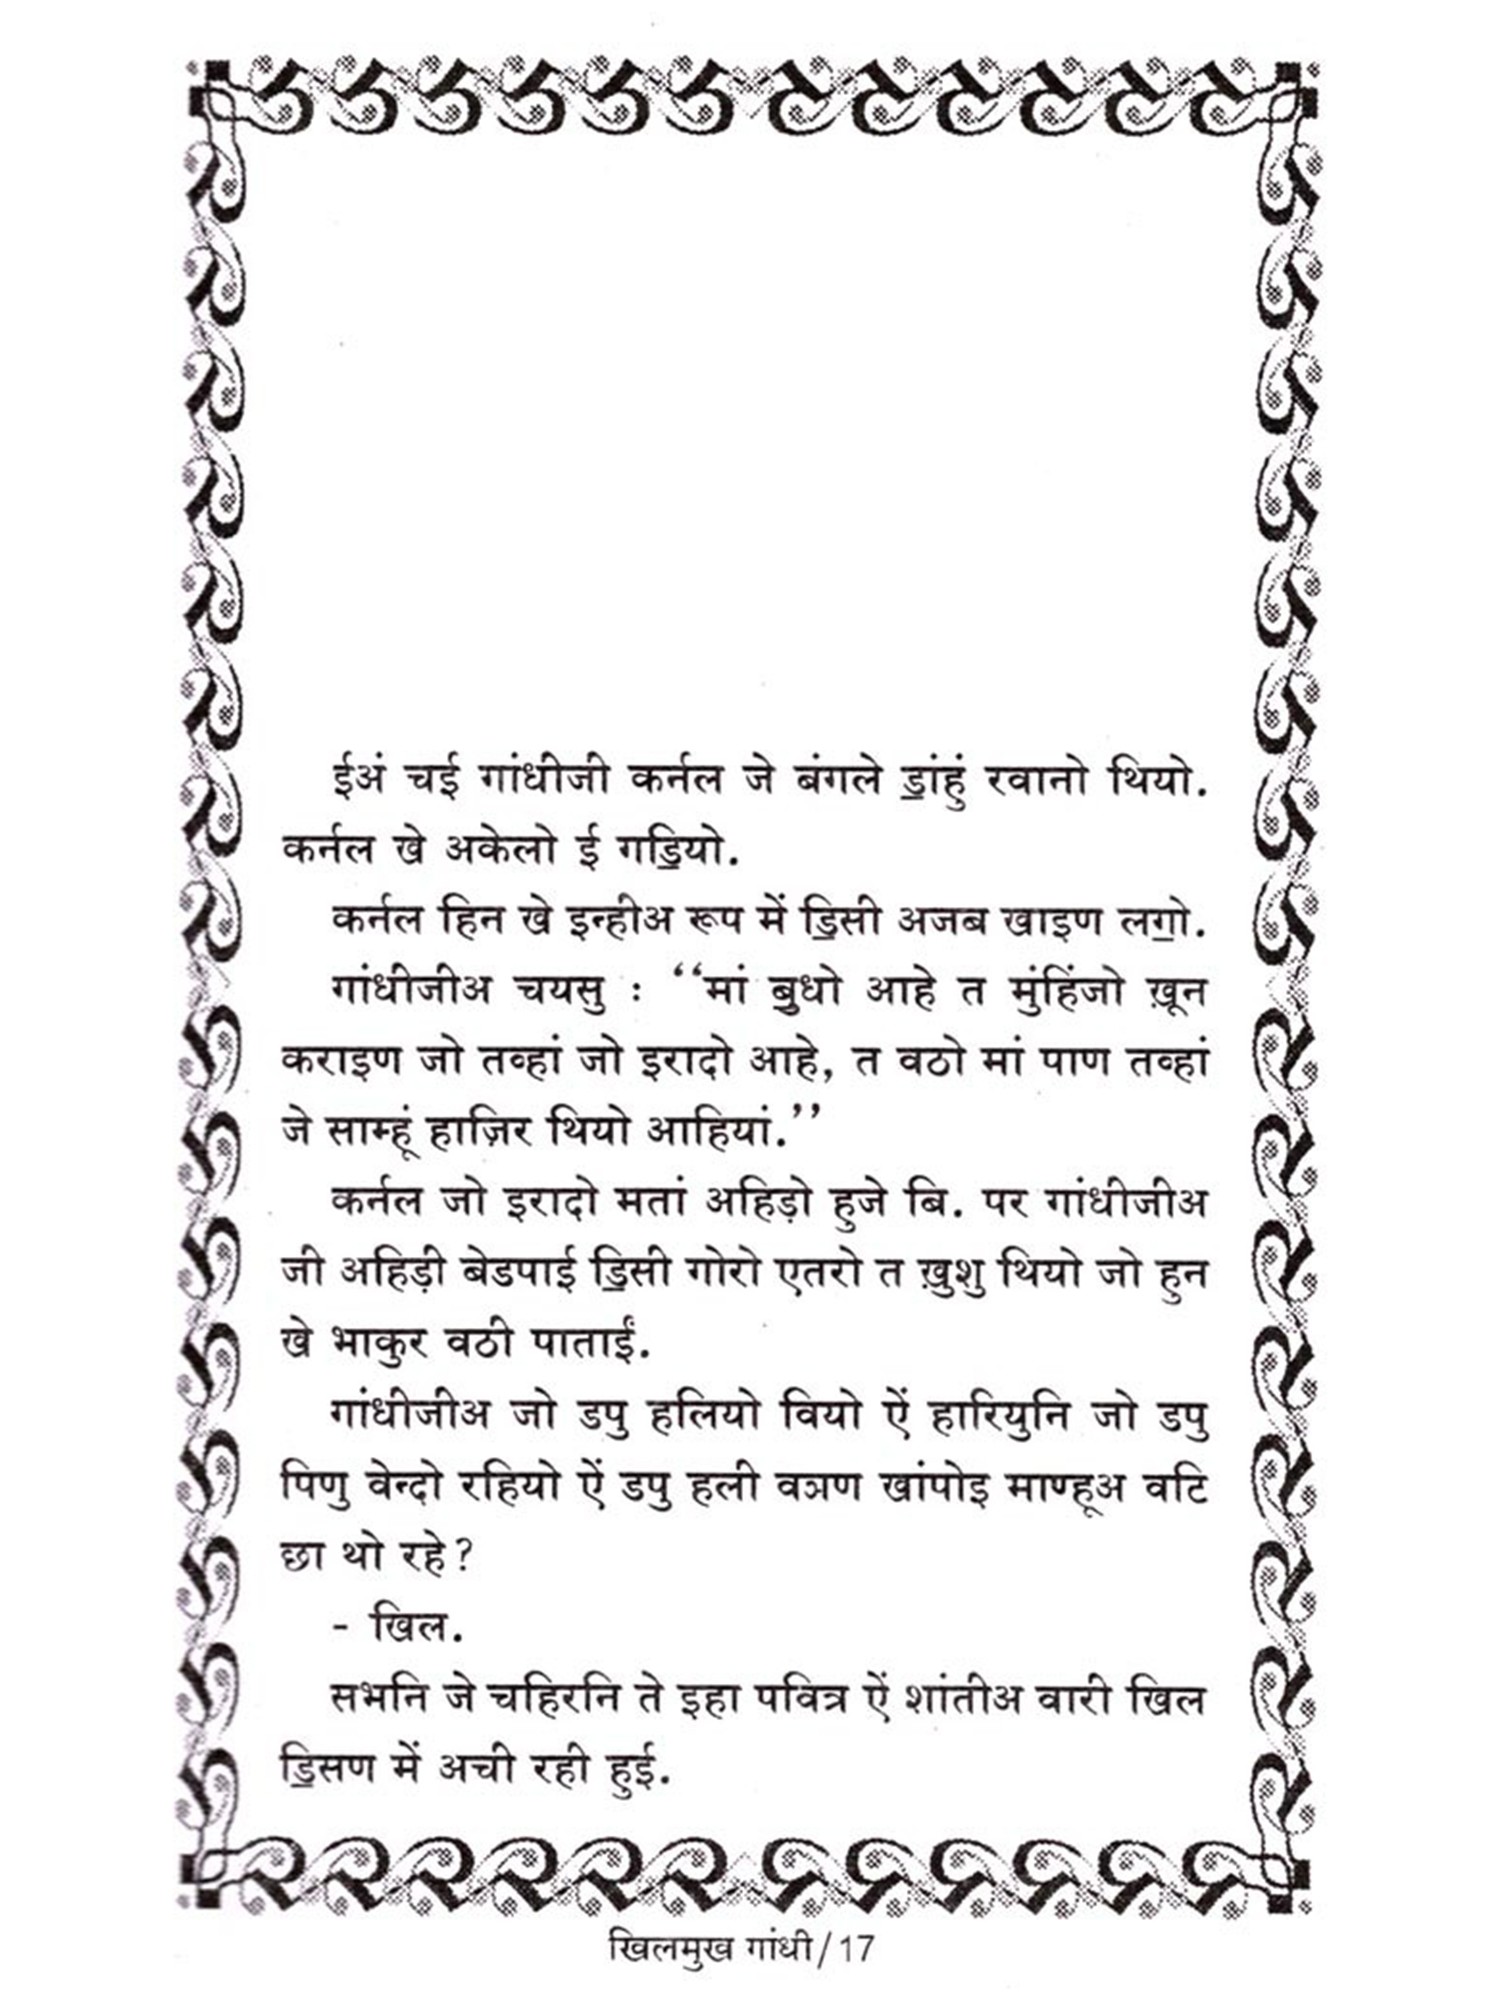 ईअं चई गांधीजी कर्नल जे बंगले ॾांहुं रवानो थियो.
कर्नल खे अकेलो ई गॾियो.
कर्नल हिन खे इन्हीअ रूप में ॾिसी अजब खाइण लॻो.
गांधीजीअ चयसु : ‘‘मां ॿुधो आहे त मुंहिंजो ख़ून
कराइण जो तव्हां जो इरादो आहे, त वठो मां पाण तव्हां
जे साम्हूं हाज़िर थियो आहियां.’’
कर्नल जो इरादो मतां अहिड़ो हुजे बि. पर गांधीजीअ
जी अहिड़ी बेडपाई ॾिसी गोरो एतरो त ख़ुशु थियो जो हुन
खे भाकुर वठी पाताईं.
गांधीजीअ जो डपु हलियो वियो ऐं हारियुनि जो डपु
पिणु वेन्दो रहियो ऐं डपु हली वञण खांपोइ माण्हूअ वटि
छा थो रहे?
- खिल.
सभनि जे चहिरनि ते इहा पवित्र ऐं शांतीअ वारी खिल
ॾिसण में अची रही हुई.
खिलमुख गांधी/17